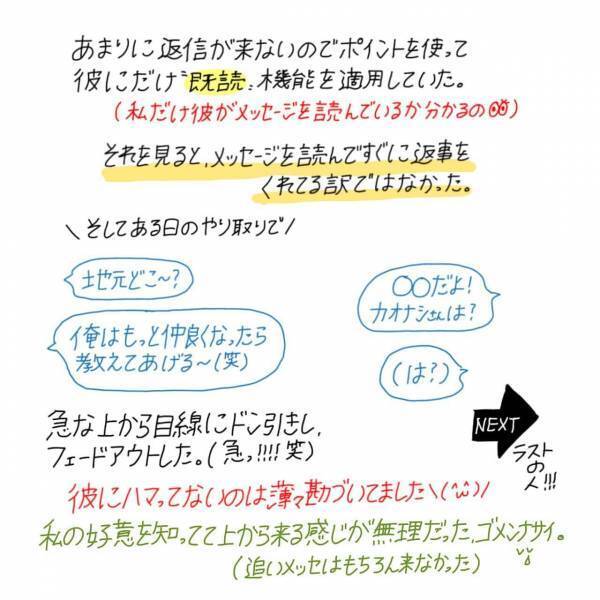 あまりに返信が来ないのでポイントを使って
彼にだけ"既読"機能を適用していた。
(私だけ彼がメッセージを読んでいるか分かるの)
それを見ると、メッセージを読んですぐに返事を
くれてる訳ではなかった。
\そしてある日のやり取りで/
地元どこ〜?
〇〇だよ!
カオナシさんは?
俺はもっと仲良くなったら
教えてあげる〜(笑)
(は?)
急な上から目線にドン引きし、
フェードアウトした。(急っ!!!!笑)
NEXT
ラスト
の
人!!!
彼にハマってないのは薄々勘づいてました\(^ω^)/
私の好意を知ってて上から来る感じが無理だった、ゴメンナサイ。
(追いメッセはもちろん来なかった)